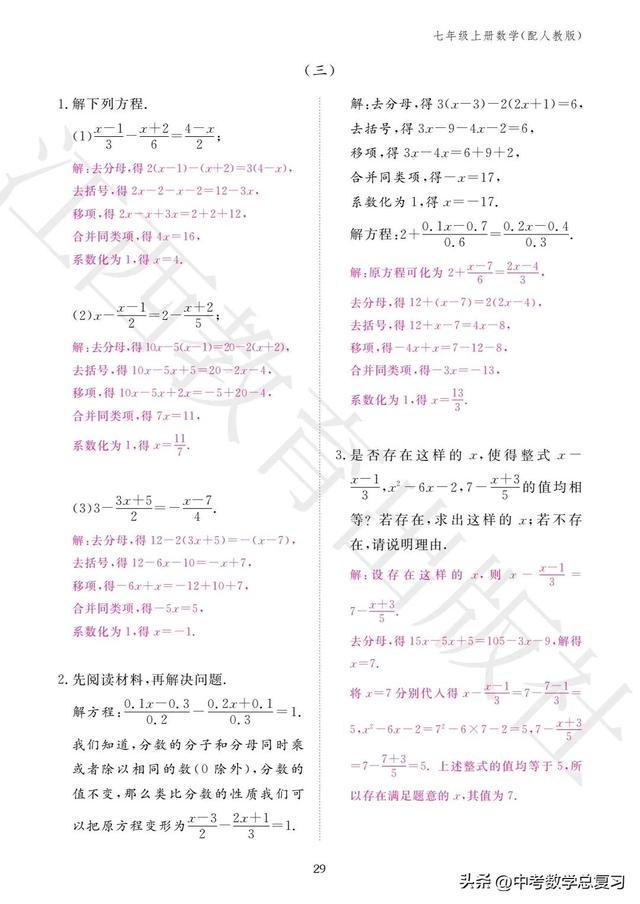 七年级上册数学(配人教版)
(三)
1.解下列方程.
(1)\frac{x-1}{3}-\frac{x+2}{6}=\frac{4-x}{2};
解:去分母,得2(x-1)-(x+2)=3(4-x),
去括号,得2x-2-x-2=12-3x,
移项,得2x-x+3x=2+2+12,
合并同类项,得4x=16,
系数化为1,得x=4.
(2)x-\frac{x-1}{2}=2-\frac{x+2}{5};
解:去分母,得10x-5(x-1)=20-2(x+2),
去括号,得10x-5x+5=20-2x-4,
移项,得10x-5x+2x=-5+20-4,
合并同类项,得7x=11,
系数化为1,得x=\frac{11}{7}.
(3)3-\frac{3x+5}{2}=-\frac{x-7}{4}.
解:去分母,得12-2(3x+5)=-(x-7),
去括号,得12-6x-10=-x+7,
移项,得-6x+x=-12+10+7,
合并同类项,得-5x=5,
系数化为1,得x=-1.
2.先阅读材料,再解决问题.
解方程:\frac{0.1x-0.3}{0.2}-\frac{0.2x+0.1}{0.3}=1.
我们知道,分数的分子和分母同时乘
或者除以相同的数(0除外),分数的
值不变,那么类比分数的性质我们可
以把原方程变形为\frac{x-3}{2}-\frac{2x+1}{3}=1.
解:去分母,得3(x-3)-2(2x+1)=6,
去括号,得3x-9-4x-2=6,
移项,得3x-4x=6+9+2,
合并同类项,得-x=17,
系数化为1,得x=-17.
解方程:2+\frac{0.1x-0.7}{0.6}=\frac{0.2x-0.4}{0.3}.
解:原方程可化为2+\frac{x-7}{6}=\frac{2x-4}{3},
去分母,得12+(x-7)=2(2x-4),
去括号,得12+x-7=4x-8,
移项,得-4x+x=7-12-8,
合并同类项,得-3x=-13,
系数化为1,得x=\frac{13}{3}.
3.是否存在这样的x,使得整式x-
\frac{x-1}{3},x²-6x-2,7-\frac{x+3}{5}的值均相
等?若存在,求出这样的x;若不存
在,请说明理由.
解:设存在这样的x,则x-\frac{x-1}{3}=
7-\frac{x+3}{5}.
去分母,得15x-5x+5=105-3x-9,解得
x=7.
将x=7分别代入得x-\frac{x-1}{3}=7-\frac{7-1}{3}=
5,x²-6x-2=7²-6×7-2=5,7-\frac{x+3}{5}
=7-\frac{7+3}{5}=5. 上述整式的值均等于5,所
以存在满足题意的x,其值为7.
29
江西教育出版社
头条@中考数学总复习